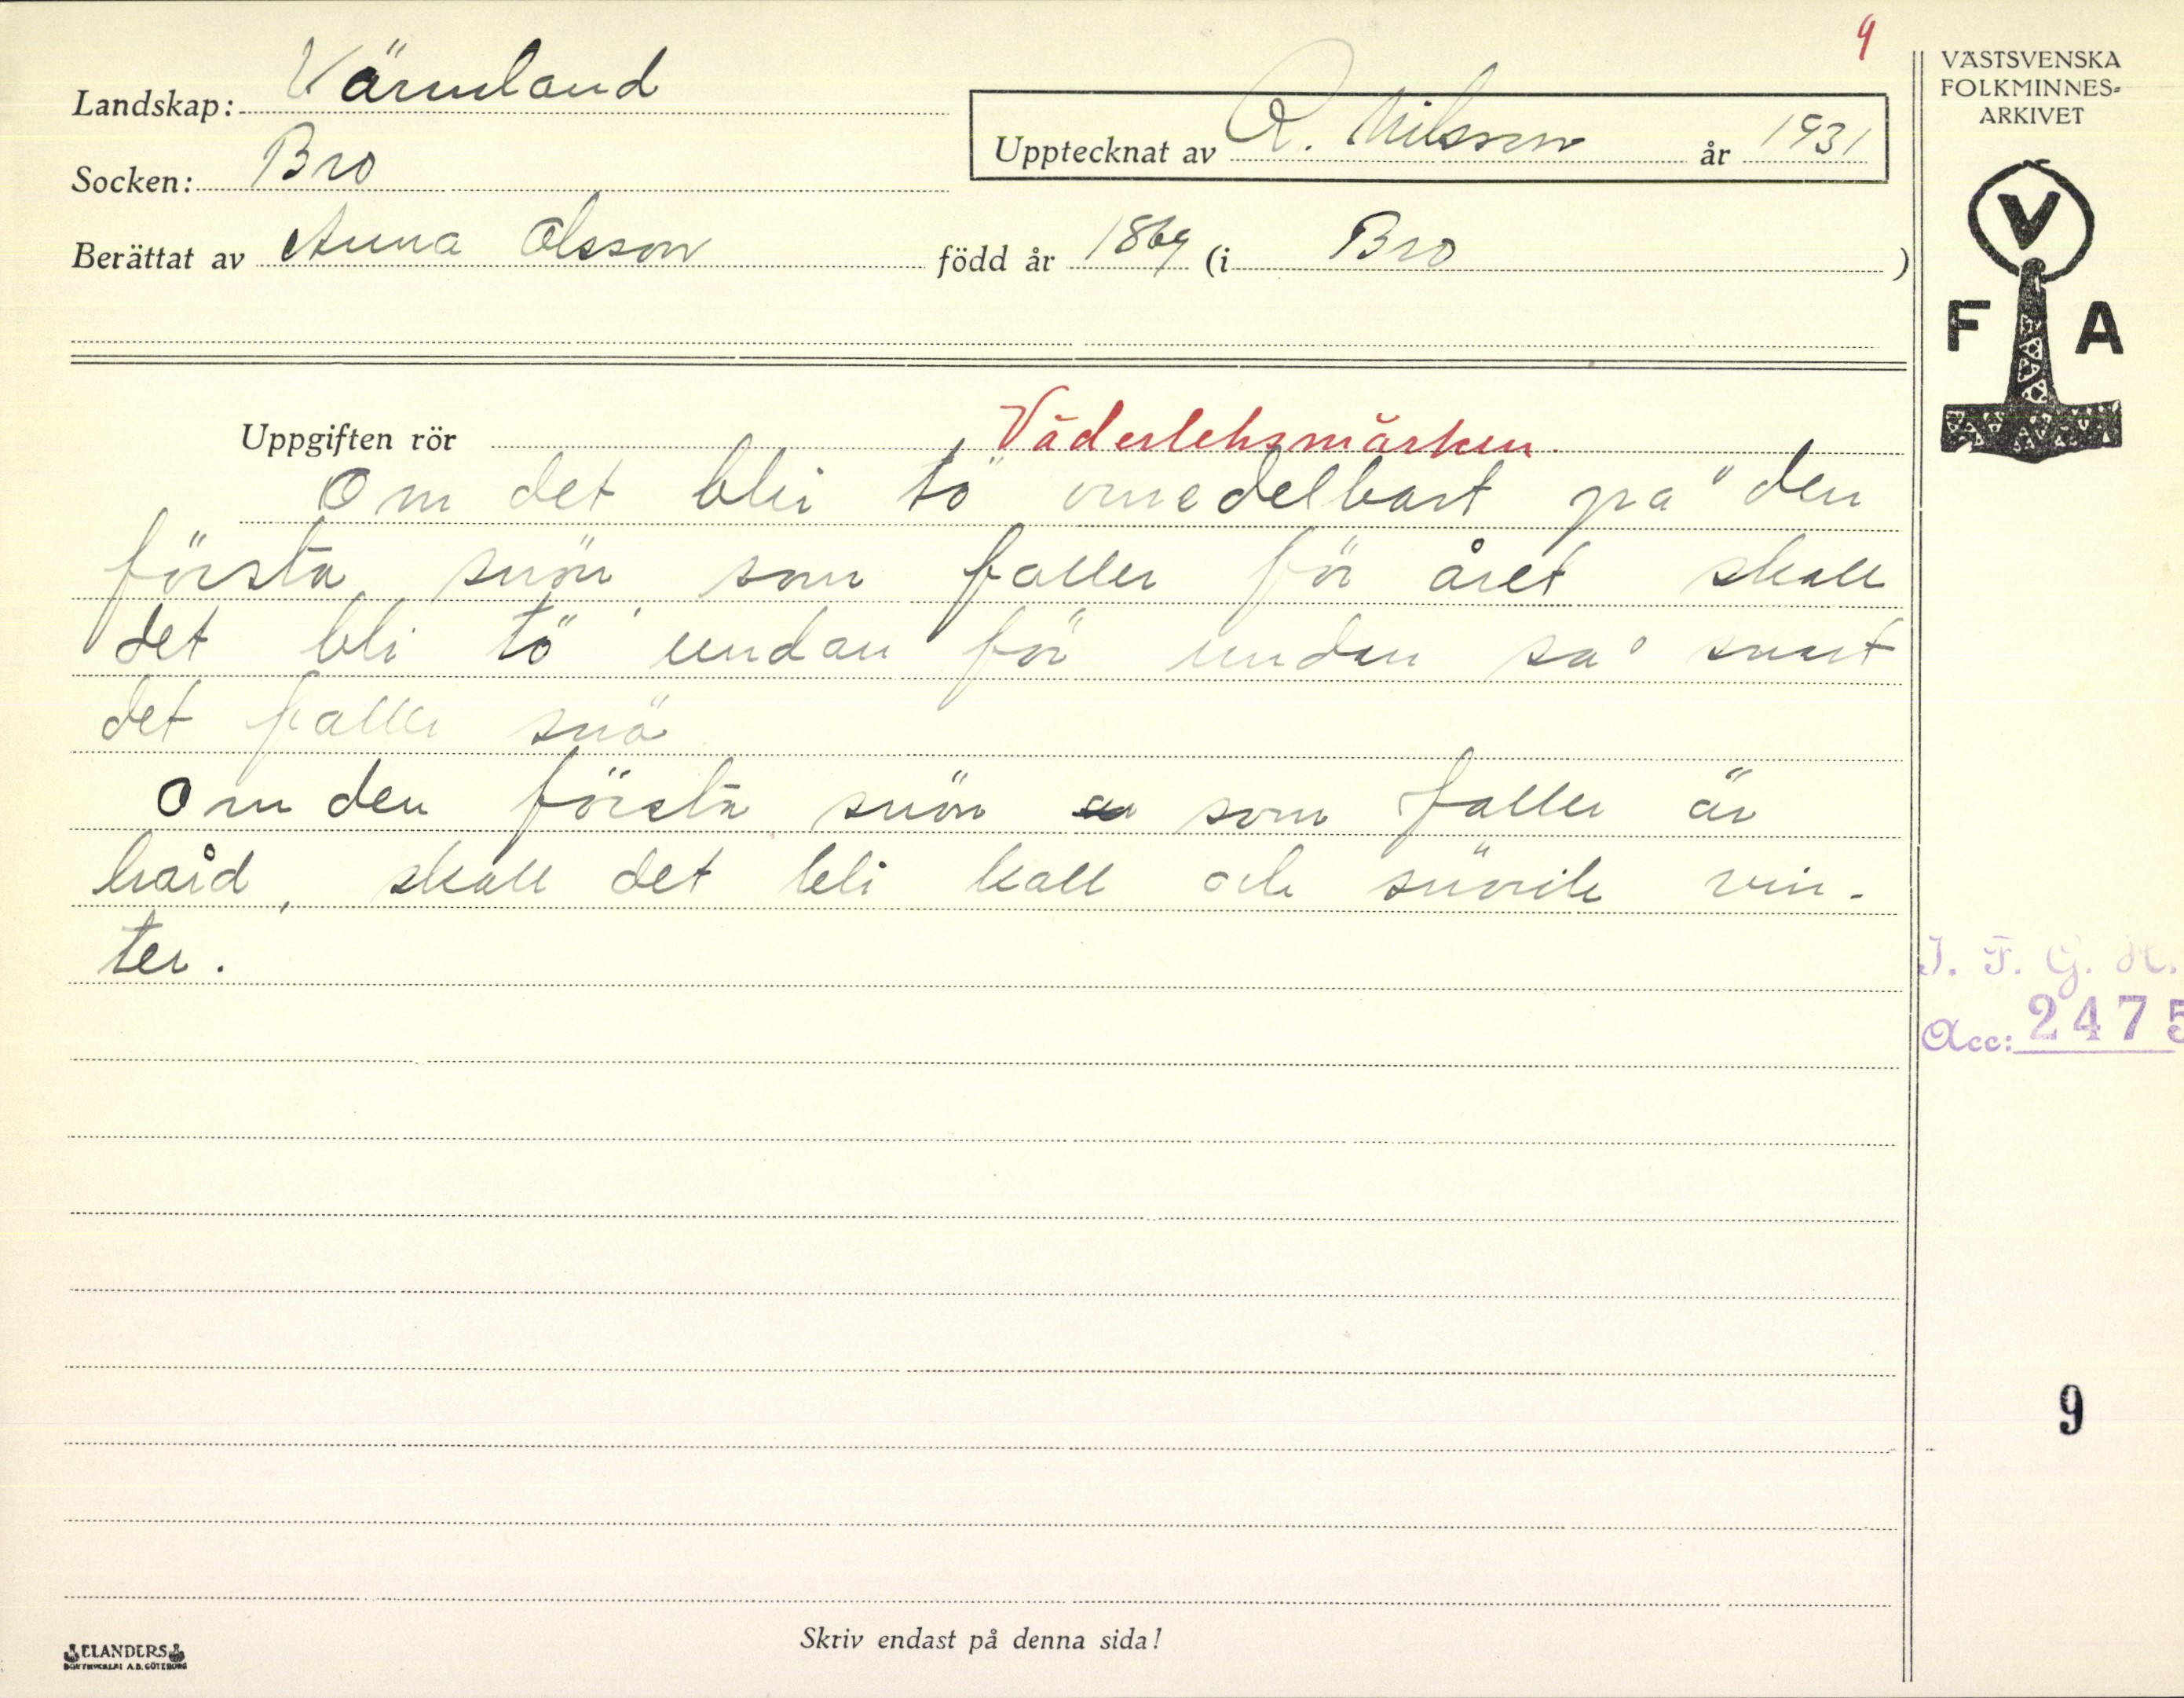 9
VÄSTSVENSKA
FOLKMINNES-
ARKIVET
V
F A
Landskap: Värmland
Upptecknat av R. Nilsson år 1931
Socken: Bro
Berättat av Anna Olsson född år 1869 (i Bro)
Uppgiften rör Väderleksmärken.
Om det blir tö omedelbart på den
första snön som faller för året skall
det bli tö undan för undan så snart
det faller snö
Om den första snön som faller är
hård, skall det bli kall och snörik vin-
ter.
J. F. G. H.
Acc: 2475
9
Skriv endast på denna sida!
ELANDERS
BOKTRYCKERI A.B. GÖTEBORG